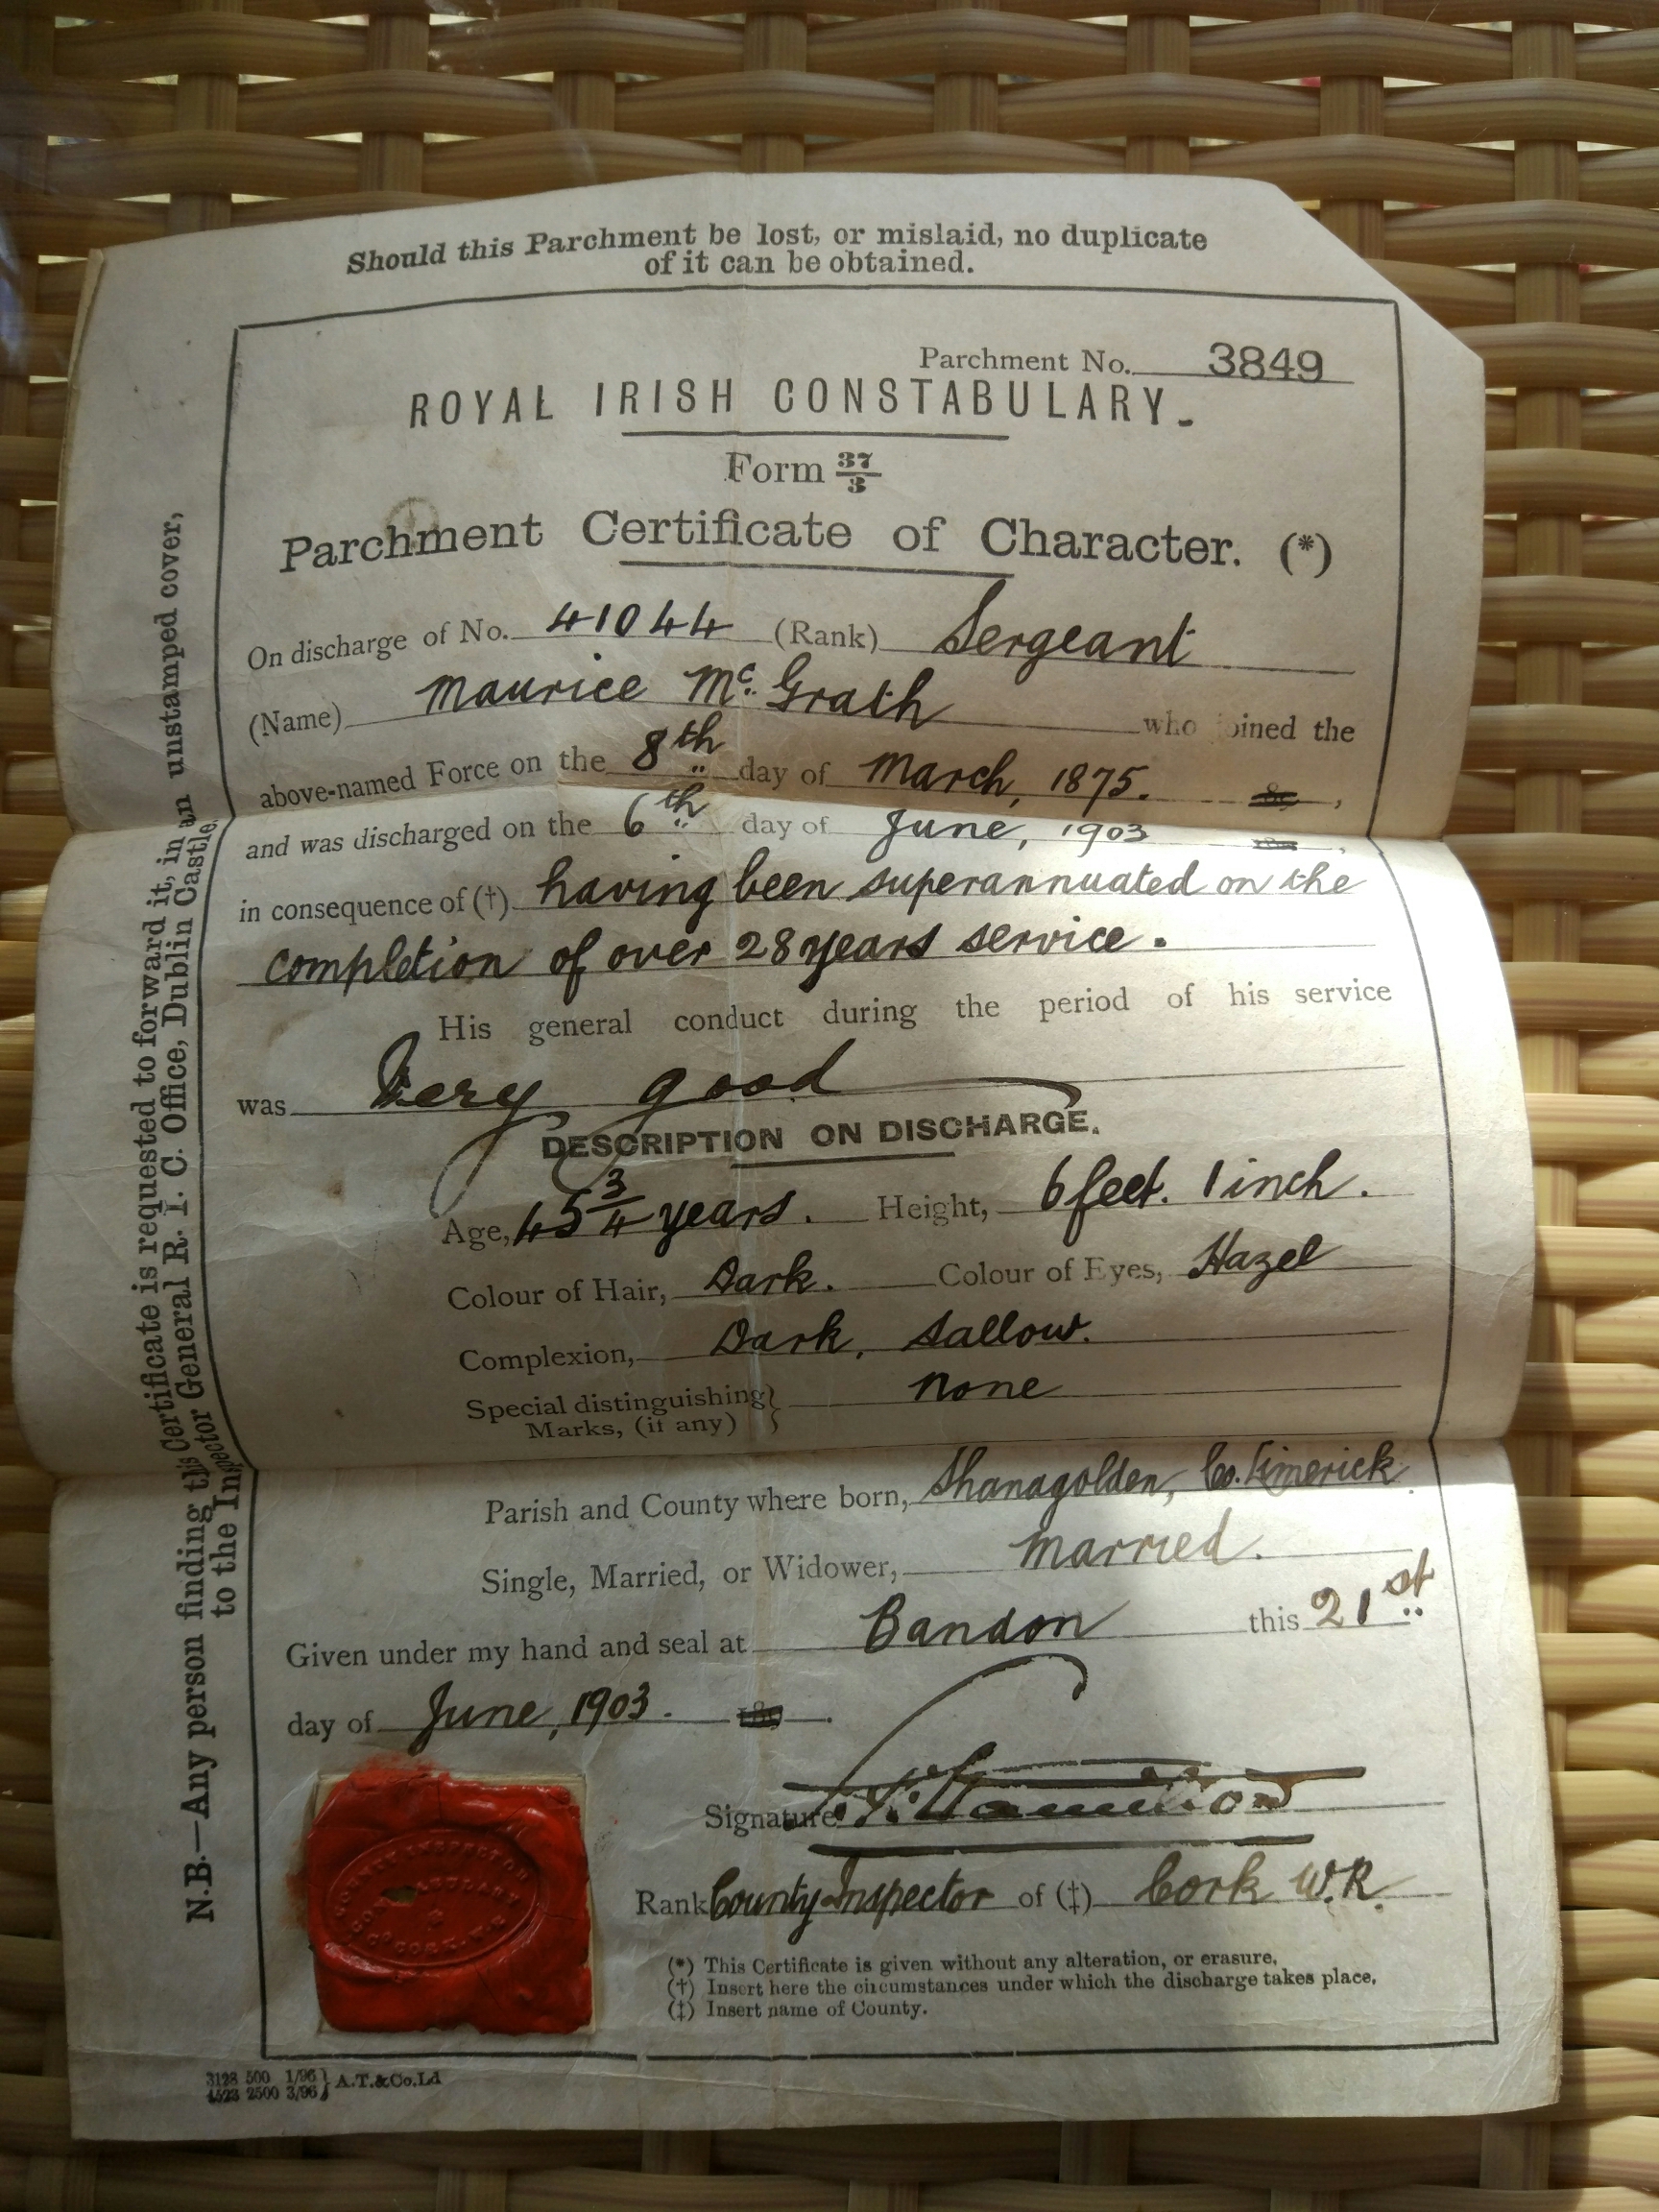 Should this Parchment be lost, or mislaid, no duplicate
of it can be obtained.
Parchment No. 3849
ROYAL IRISH CONSTABULARY.
Form 37/3
Parchment Certificate of Character. (*)
On discharge of No. 41044 (Rank) Sergeant
(Name) Maurice McGrath who joined the
above-named Force on the 8th day of March, 1875. 18 ,
and was discharged on the 6th day of June, 1903 18 ,
in consequence of (†) having been superannuated on the
completion of over 28 years service.
His general conduct during the period of his service
was Very good
DESCRIPTION ON DISCHARGE.
Age, 45 3/4 years. Height, 6 feet. 1 inch.
Colour of Hair, Dark. Colour of Eyes, Hazel
Complexion, Dark, Sallow.
Special distinguishing } None
Marks, (if any)
Parish and County where born, Shanagolden, Co. Limerick
Single, Married, or Widower, Married.
Given under my hand and seal at Bandon this 21st
day of June, 1903. 18 .
Signature
Rank County Inspector of (‡) Cork W.R.
COUNTY INSPECTOR
CONSTABULARY
Co CORK. W.R
(*) This Certificate is given without any alteration, or erasure.
(†) Insert here the circumstances under which the discharge takes place.
(‡) Insert name of County.
3128 500 1/96 } A.T.&Co.Ld
4523 2500 3/96
N.B.—Any person finding this Certificate is requested to forward it, in an unstamped cover,
to the Inspector General R. I. C. Office, Dublin Castle.